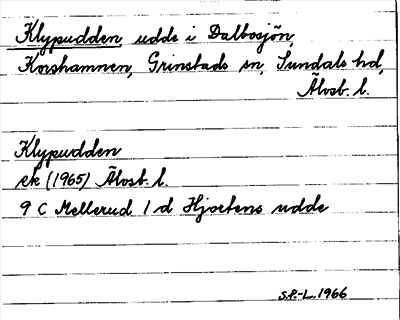 Klypudden, udde i Dalbosjön,
Korshamnen, Grinstads sn, Sundals hd,
Älvsb. l.
Klypudden
ek (1965) Älvsb. l.
9 C Mellerud 1 d Hjortens udde
S.P.-L. 1966